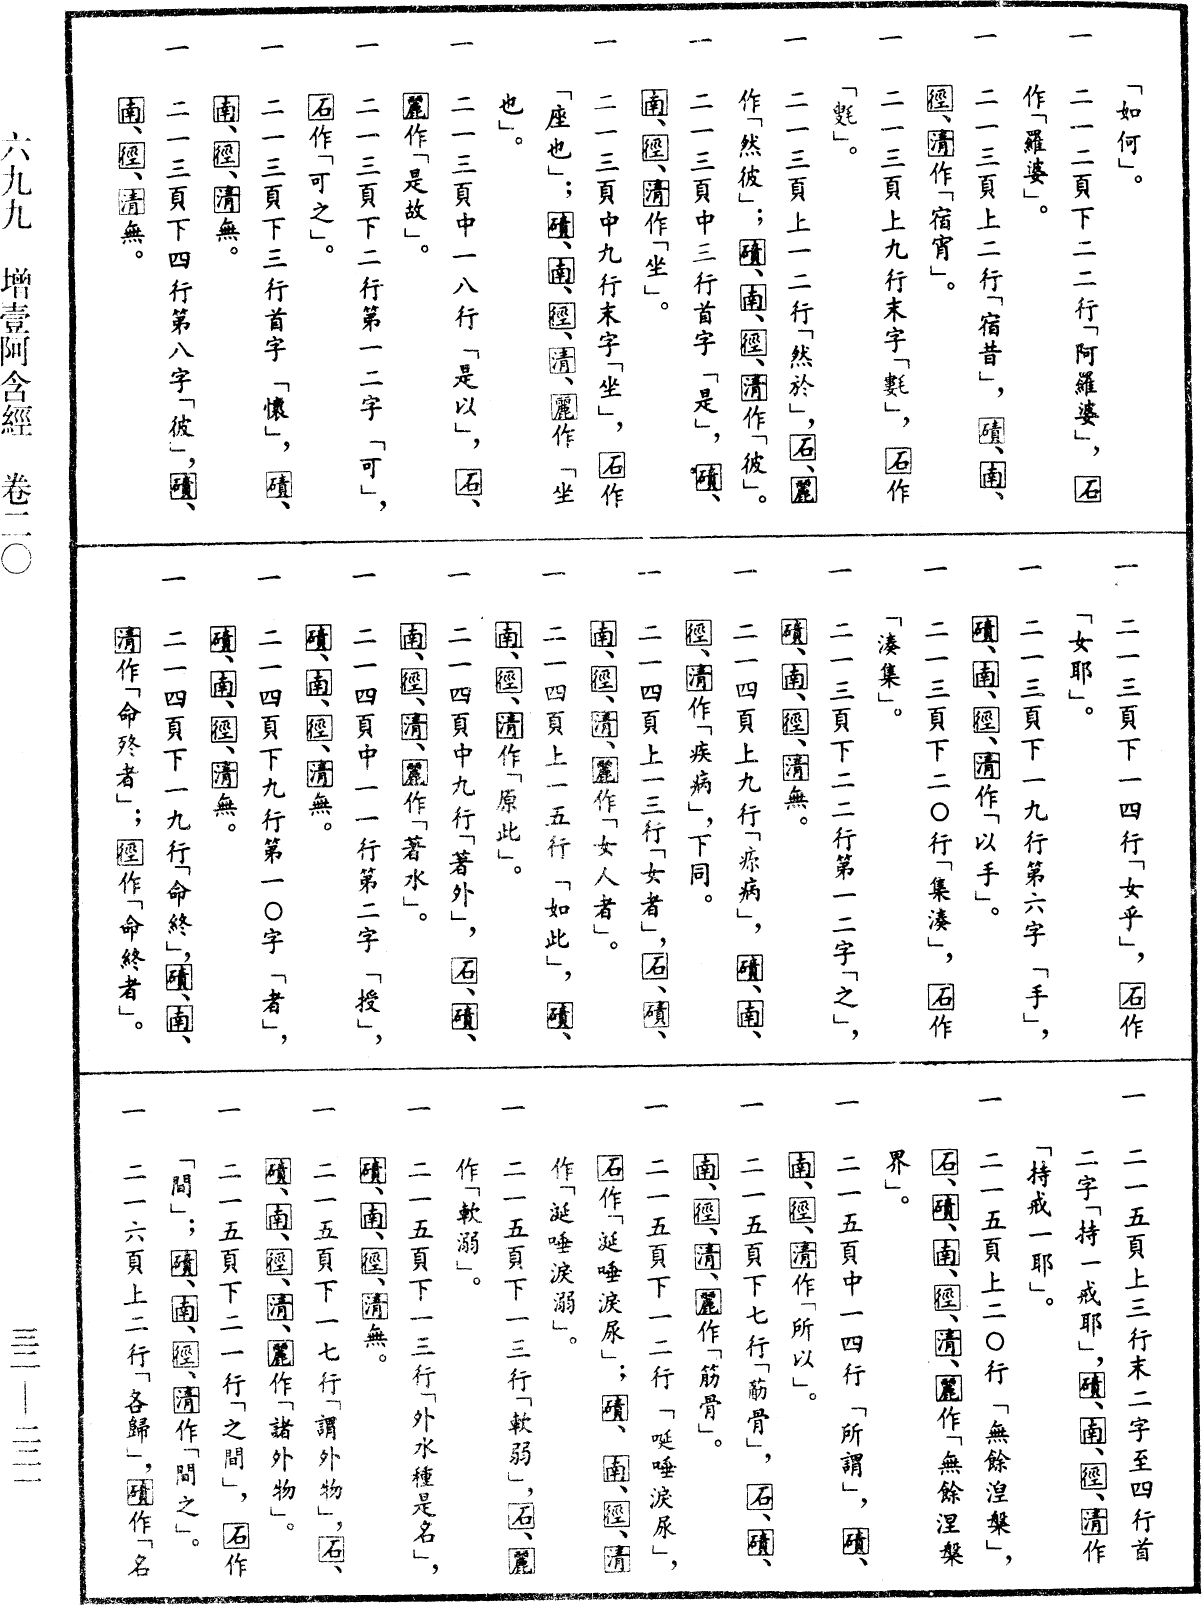 「如何」。
一　二一二頁下二二行「阿羅婆」，石
作「羅婆」。
一　二一三頁上二行「宿昔」，磧、南、
徑、清作「宿宵」。
一　二一三頁上九行末字「氀」，石作
「㲣」。
一　二一三頁上一二行「然於」，石、麗
作「然彼」；磧、南、徑、清作「彼」。
一　二一三頁中三行首字「是」，磧、
南、徑、清作「坐」。
一　二一三頁中九行末字「坐」，石作
「座也」；磧、南、徑、清、麗作「坐
也」。
一　二一三頁中一八行「是以」，石、
麗作「是故」。
一　二一三頁下二行第一二字「可」，
石作「可之」。
一　二一三頁下三行首字「懷」，磧、
南、徑、清無。
一　二一三頁下四行第八字「彼」，磧、
南、徑、清無。
一　二一三頁下一四行「女乎」，石作
「女耶」。
一　二一三頁下一九行第六字「手」，
磧、南、徑、清作「以手」。
一　二一三頁下二〇行「集湊」，石作
「湊集」。
一　二一三頁下二二行第一二字「之」，
磧、南、徑、清無。
一　二一四頁上九行「瘀病」，磧、南、
徑、清作「疾病」，下同。
一　二一四頁上一三行「女者」，石、磧、
南、徑、清、麗作「女人者」。
一　二一四頁上一五行「如此」，磧、
南、徑、清作「原此」。
一　二一四頁中九行「著外」，石、磧、
南、徑、清、麗作「著水」。
一　二一四頁中一一行第二字「授」，
磧、南、徑、清無。
一　二一四頁下九行第一〇字「者」，
磧、南、徑、清無。
一　二一四頁下一九行「命終」，磧、南、
清作「命殁者」；徑作「命終者」。
一　二一五頁上三行末二字至四行首
二字「持一戒耶」，磧、南、徑、清作
「持戒一耶」。
一　二一五頁上二〇行「無餘湼槃」，
石、磧、南、徑、清、麗作「無餘涅槃
界」。
一　二一五頁中一四行「所謂」，磧、
南、徑、清作「所以」。
一　二一五頁下七行「荕骨」，石、磧、
南、徑、清、麗作「筋骨」。
一　二一五頁下一二行「唌唾淚尿」，
石作「涎唾淚尿」；磧、南、徑、清
作「涎唾淚溺」。
一　二一五頁下一三行「軟弱」，石、麗
作「軟溺」。
一　二一五頁下一三行「外水種是名」，
磧、南、徑、清無。
一　二一五頁下一七行「謂外物」，石、
磧、南、徑、清、麗作「諸外物」。
一　二一五頁下二一行「之間」，石作
「間」；磧、南、徑、清作「間之」。
一　二一六頁上二行「各歸」，磧作「名
六九九　增壹阿含經　卷二〇
三二—二二一